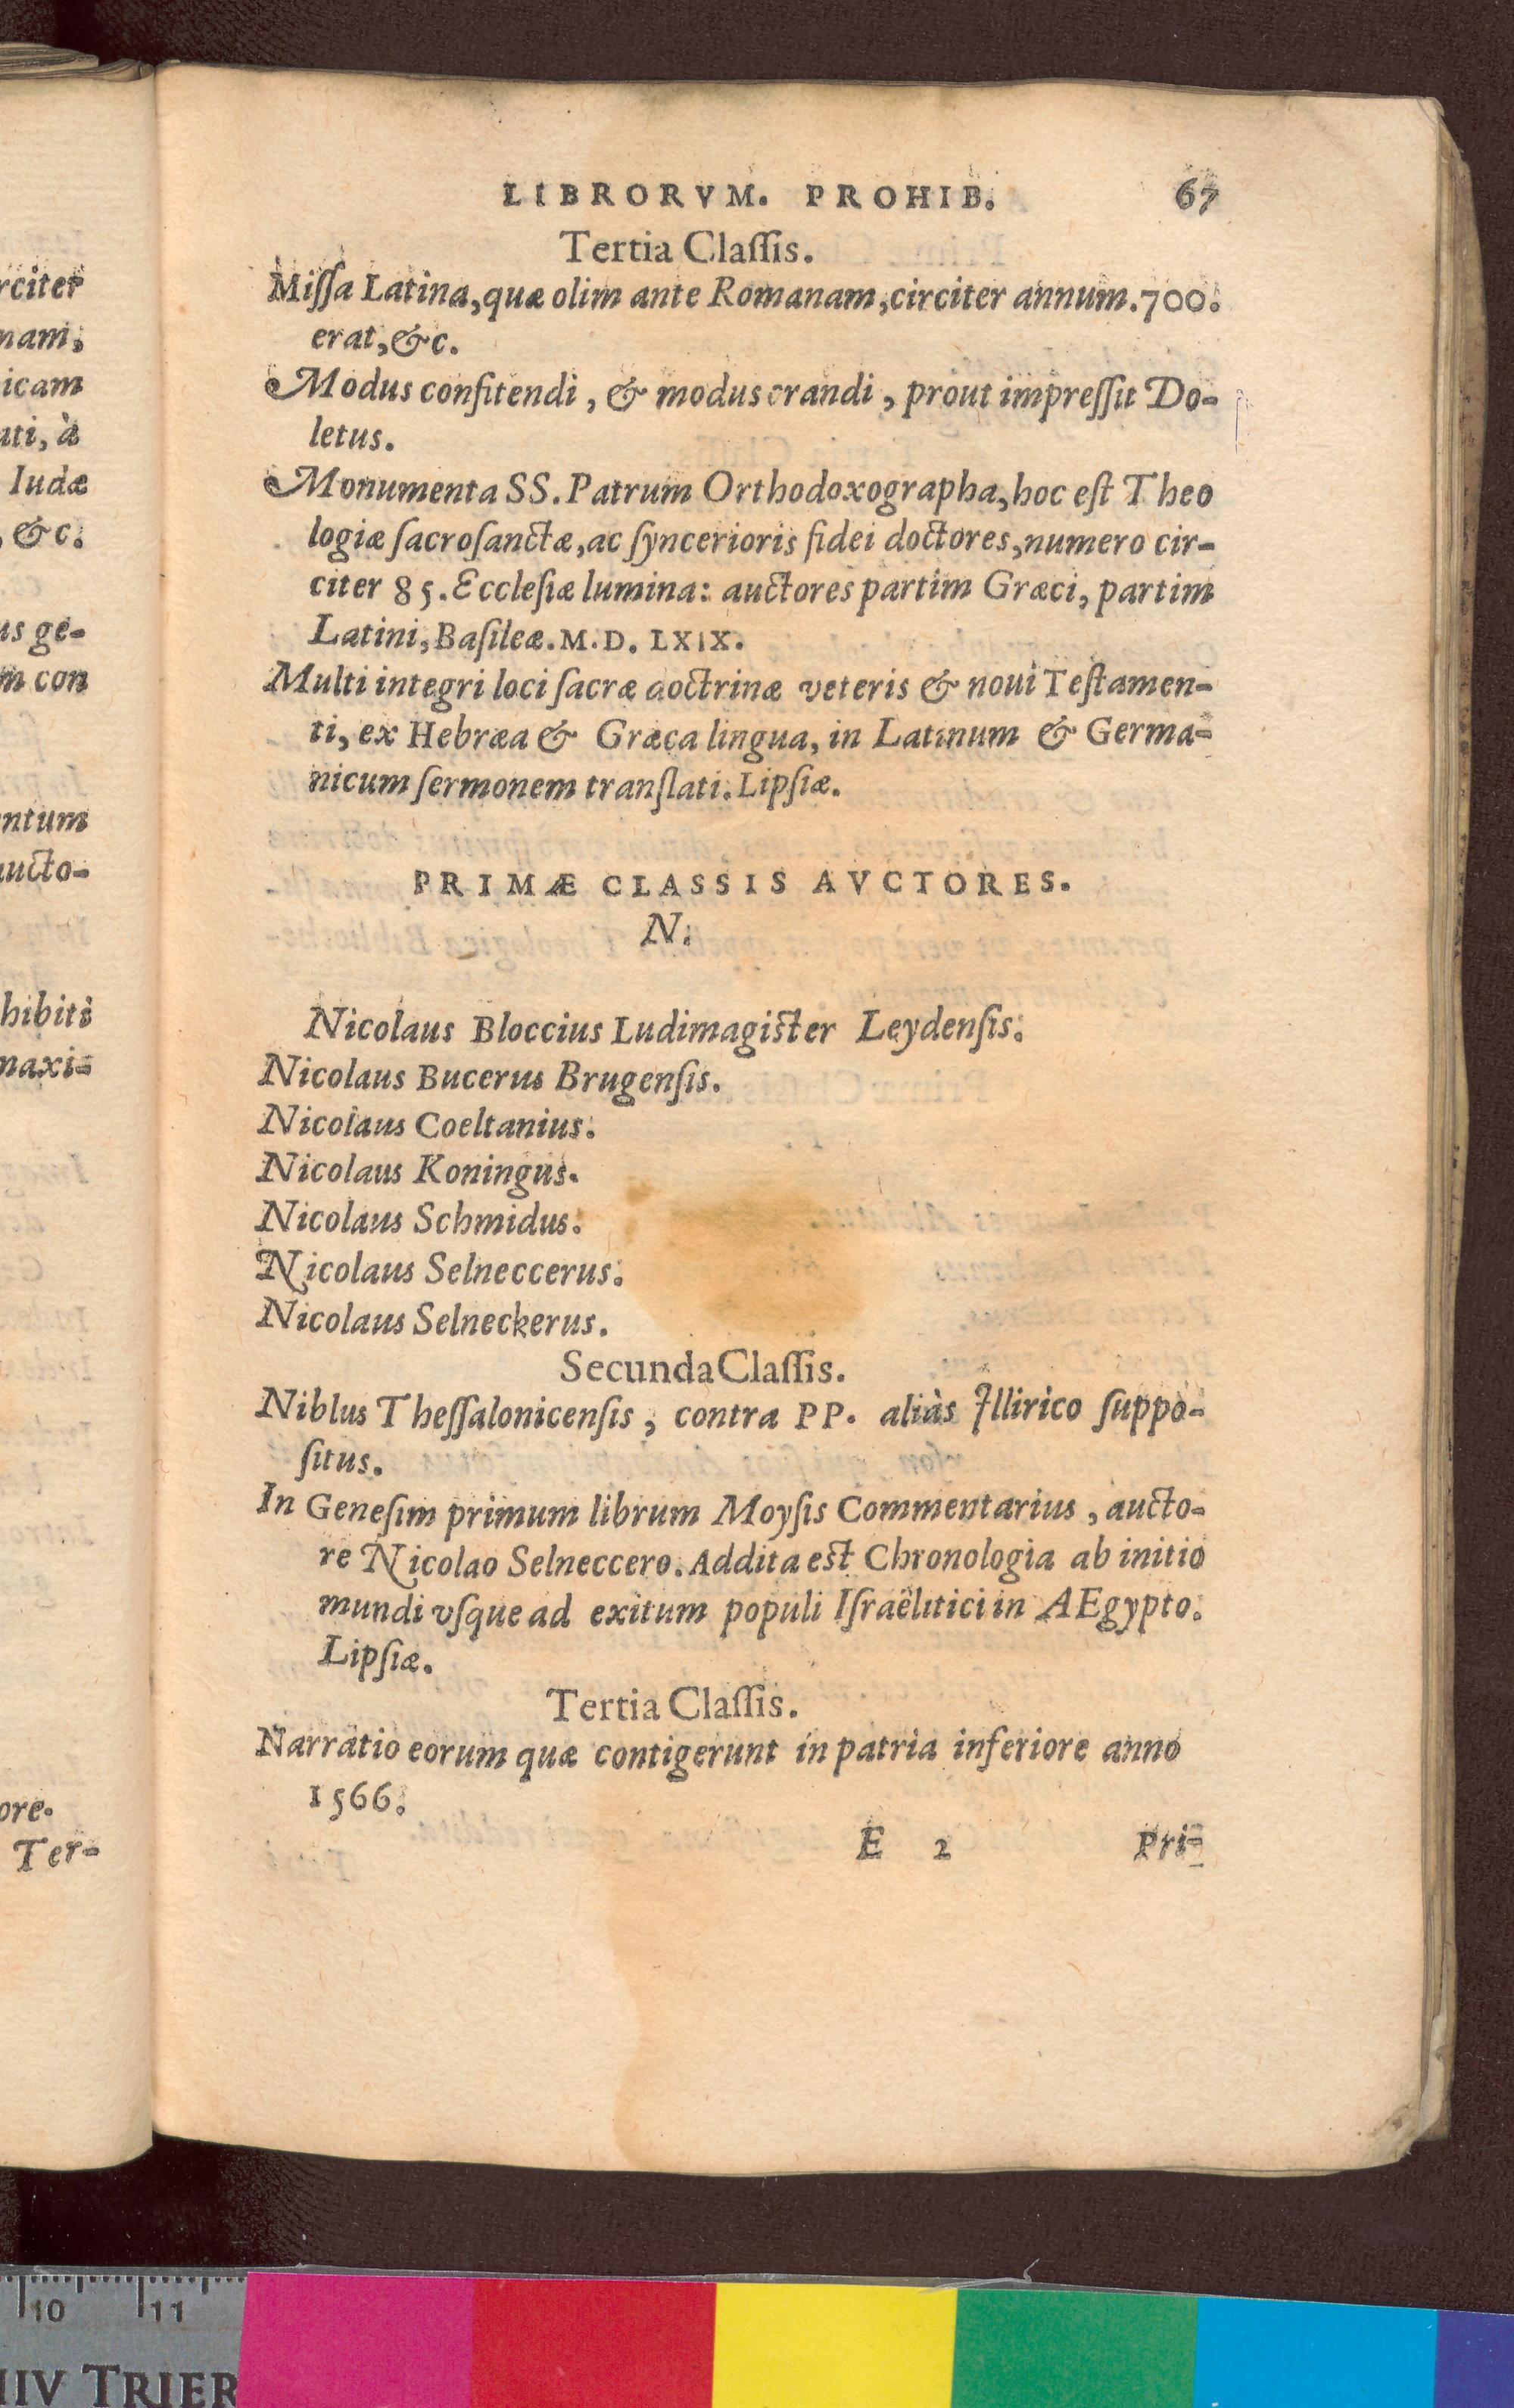 LIBRORVM. PROHIB. 67
Tertia Claſſis.
Miſſa Latina, quæ olim ante Romanam, circiter annum. 700.
erat, &c.
Modus confitendi, & modus orandi, prout impreſſit Do-
letus.
Monumenta SS. Patrum Orthodoxographa, hoc eſt Theo
logiæ ſacroſanctæ, ac ſyncerioris fidei doctores, numero cir-
citer 85. Eccleſiæ lumina: auctores partim Græci, partim
Latini, Baſileæ. M. D. LXIX.
Multi integri loci ſacræ doctrinæ veteris & noui Teſtamen-
ti, ex Hebræa & Græca lingua, in Latinum & Germa-
nicum ſermonem tranſlati. Lipſiæ.
PRIMÆ CLASSIS AVCTORES.
N.
Nicolaus Bloccius Ludimagiſter Leydenſis.
Nicolaus Bucerus Brugenſis.
Nicolaus Coeltanius.
Nicolaus Koningus.
Nicolaus Schmidus.
Nicolaus Selneccerus.
Nicolaus Selneckerus.
Secunda Claſſis.
Niblus Theſſalonicenſis, contra PP. aliàs Illirico ſuppo-
ſitus.
In Geneſim primum librum Moyſis Commentarius, aucto-
re Nicolao Selneccero. Addita eſt Chronologia ab initio
mundi vſque ad exitum populi Iſraëlitici in AEgypto.
Lipſiæ.
Tertia Claſſis.
Narratio eorum quæ contigerunt in patria inferiore anno
1566.
E 2 Pri-
rciter
nam,
icam
ati, à
Iudæ
, &c.
us ge-
m con
entum
aucto-
hibiti
maxi-
ore.
Ter-
10 11
HIV TRIER